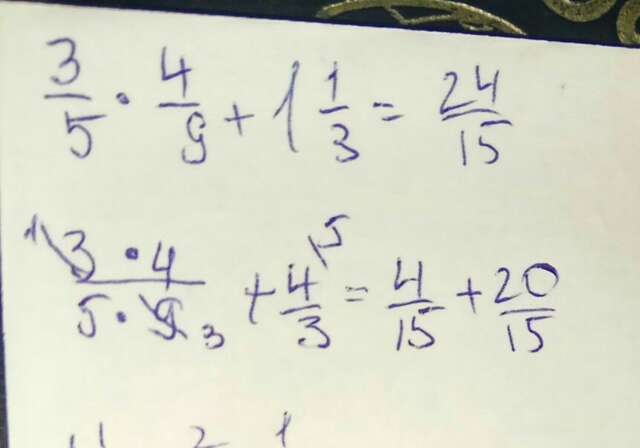 3/5 · 4/9 + 1 1/3 = 24/15
1 3 · 4 / 5 · 9 3 + 4/3 \5 = 4/15 + 20/15